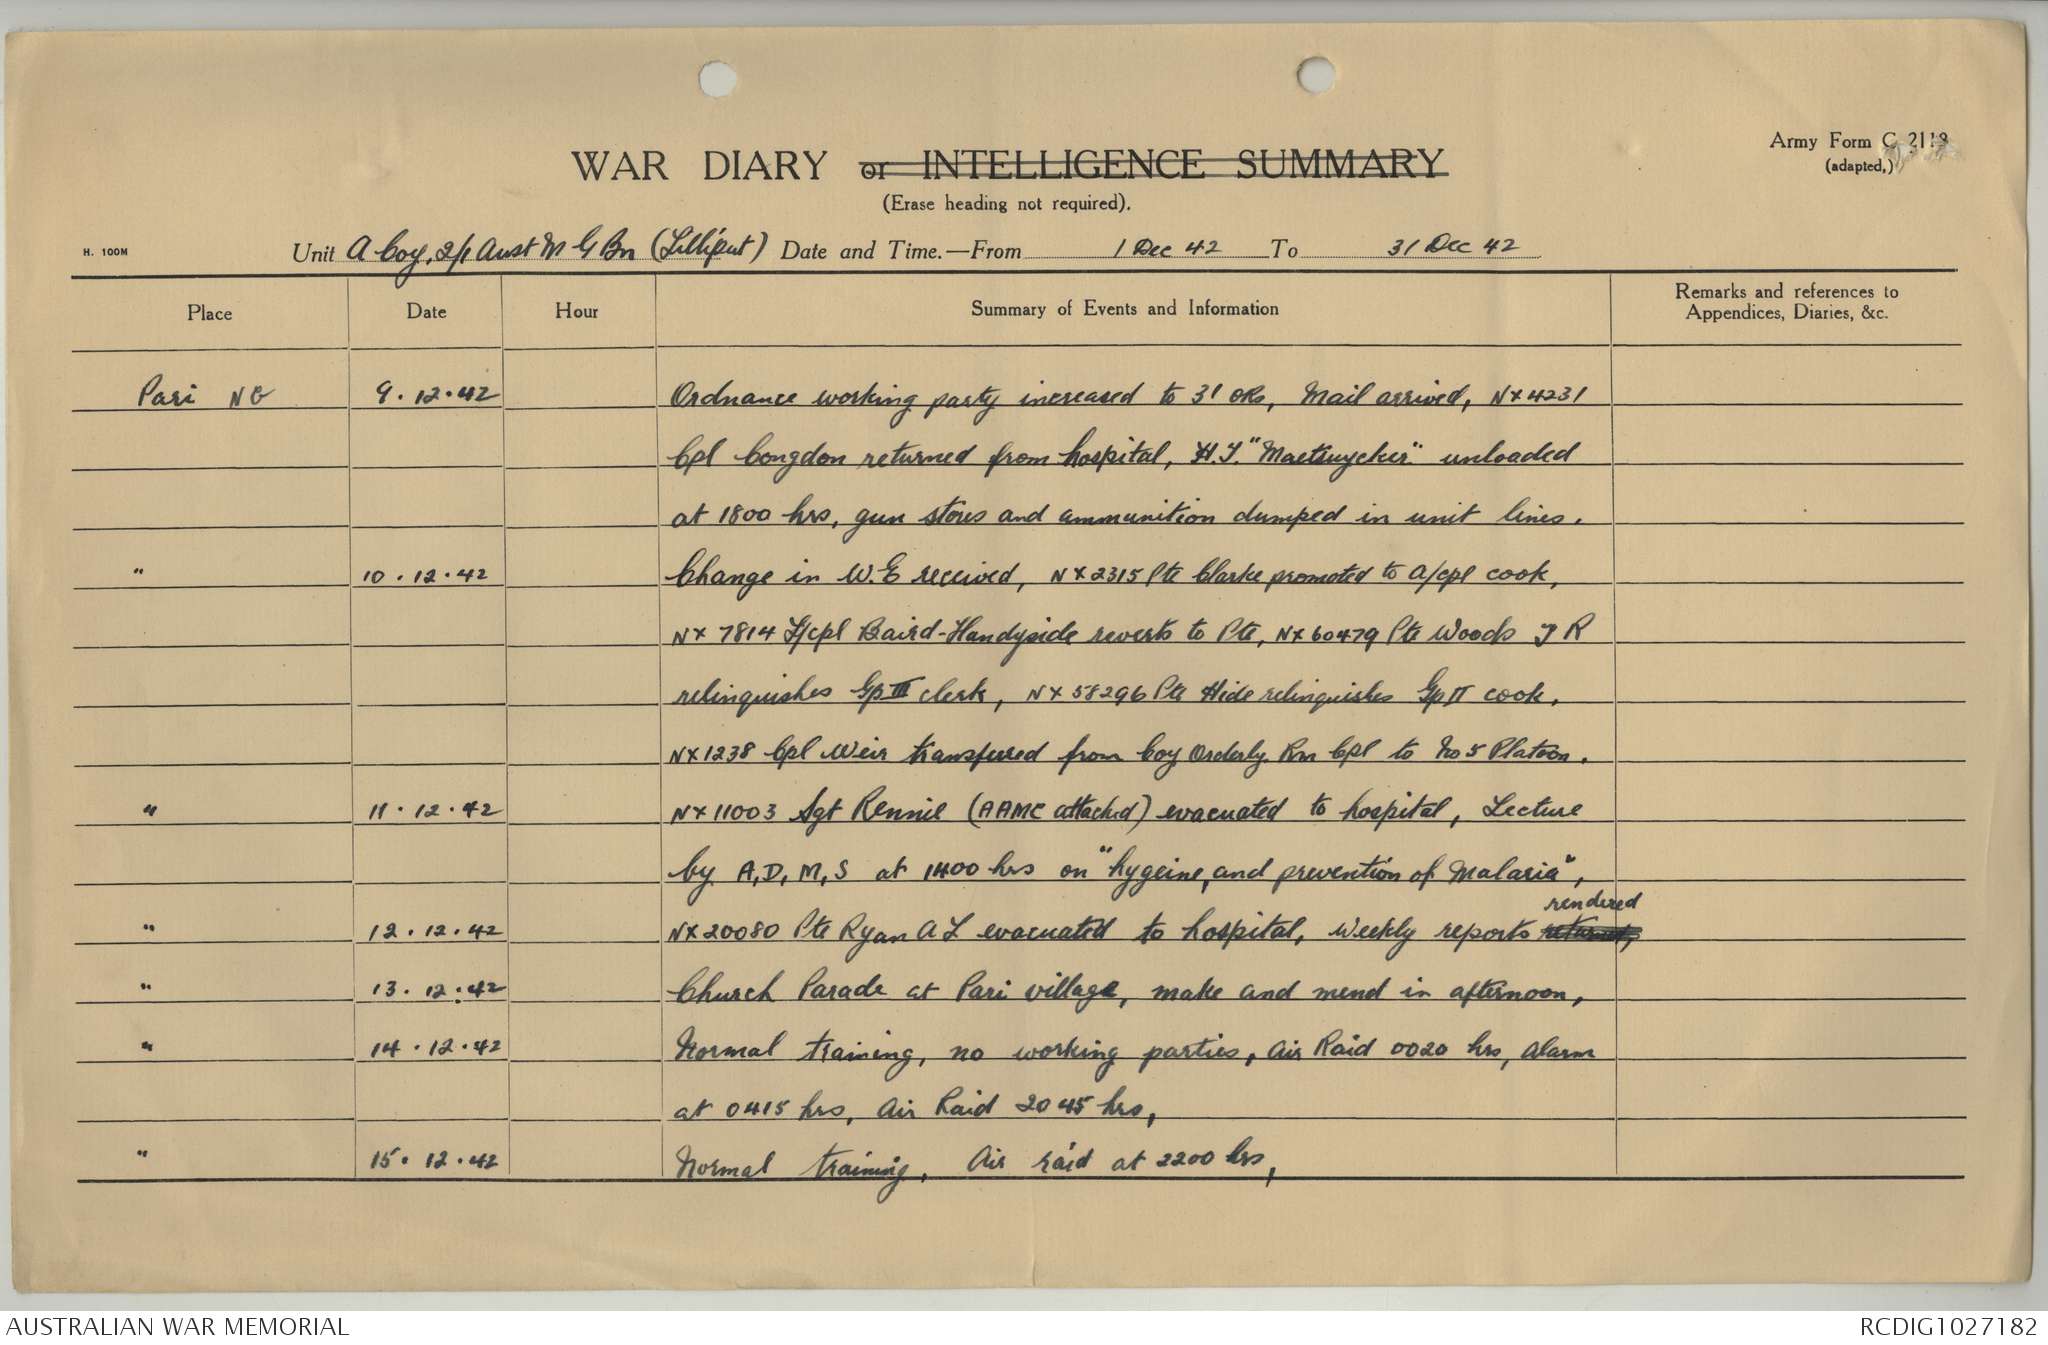 Army Form C 2118
(adapted,)
WAR DIARY or INTELLIGENCE SUMMARY
(Erase heading not required).
H. 100M
Unit A Coy, 2/1 Aust M G Bn (Lilliput) Date and Time.—From 1 Dec 42 To 31 Dec 42
Place Date Hour Summary of Events and Information Remarks and references to
Appendices, Diaries, &c.
Pari NG 9.12.42 Ordnance working party increased to 31 ORs, Mail arrived, NX4231
Cpl Congdon returned from hospital, H.T. "Maetsuycker" unloaded
at 1800 hrs, gun stores and ammunition dumped in unit lines.
" 10.12.42 Change in W.E received, NX2315 Pte Clarke promoted to A/cpl cook,
NX 7814 L/cpl Baird-Handyside reverts to Pte, NX60479 Pte Woods J R
relinquishes Gp III clerk, NX58296 Pte Hide relinquishes Gp II cook,
NX1238 Cpl Weir transferred from Coy Orderly Rm Cpl to No 5 Platoon.
" 11.12.42 NX11003 Sgt Rennie (AAMC attached) evacuated to hospital, Lecture
by A,D,M,S at 1400 hrs on "hygeine, and prevention of Malaria",
rendered
" 12.12.42 NX20080 Pte Ryan A L evacuated to hospital, Weekly reports returned,
" 13.12.42 Church Parade at Pari village, make and mend in afternoon,
" 14.12.42 Normal training, no working parties, Air Raid 0020 hrs, Alarm
at 0415 hrs, Air Raid 2045 hrs,
" 15.12.42 Normal training, Air raid at 2200 hrs,
AUSTRALIAN WAR MEMORIAL RCDIG1027182